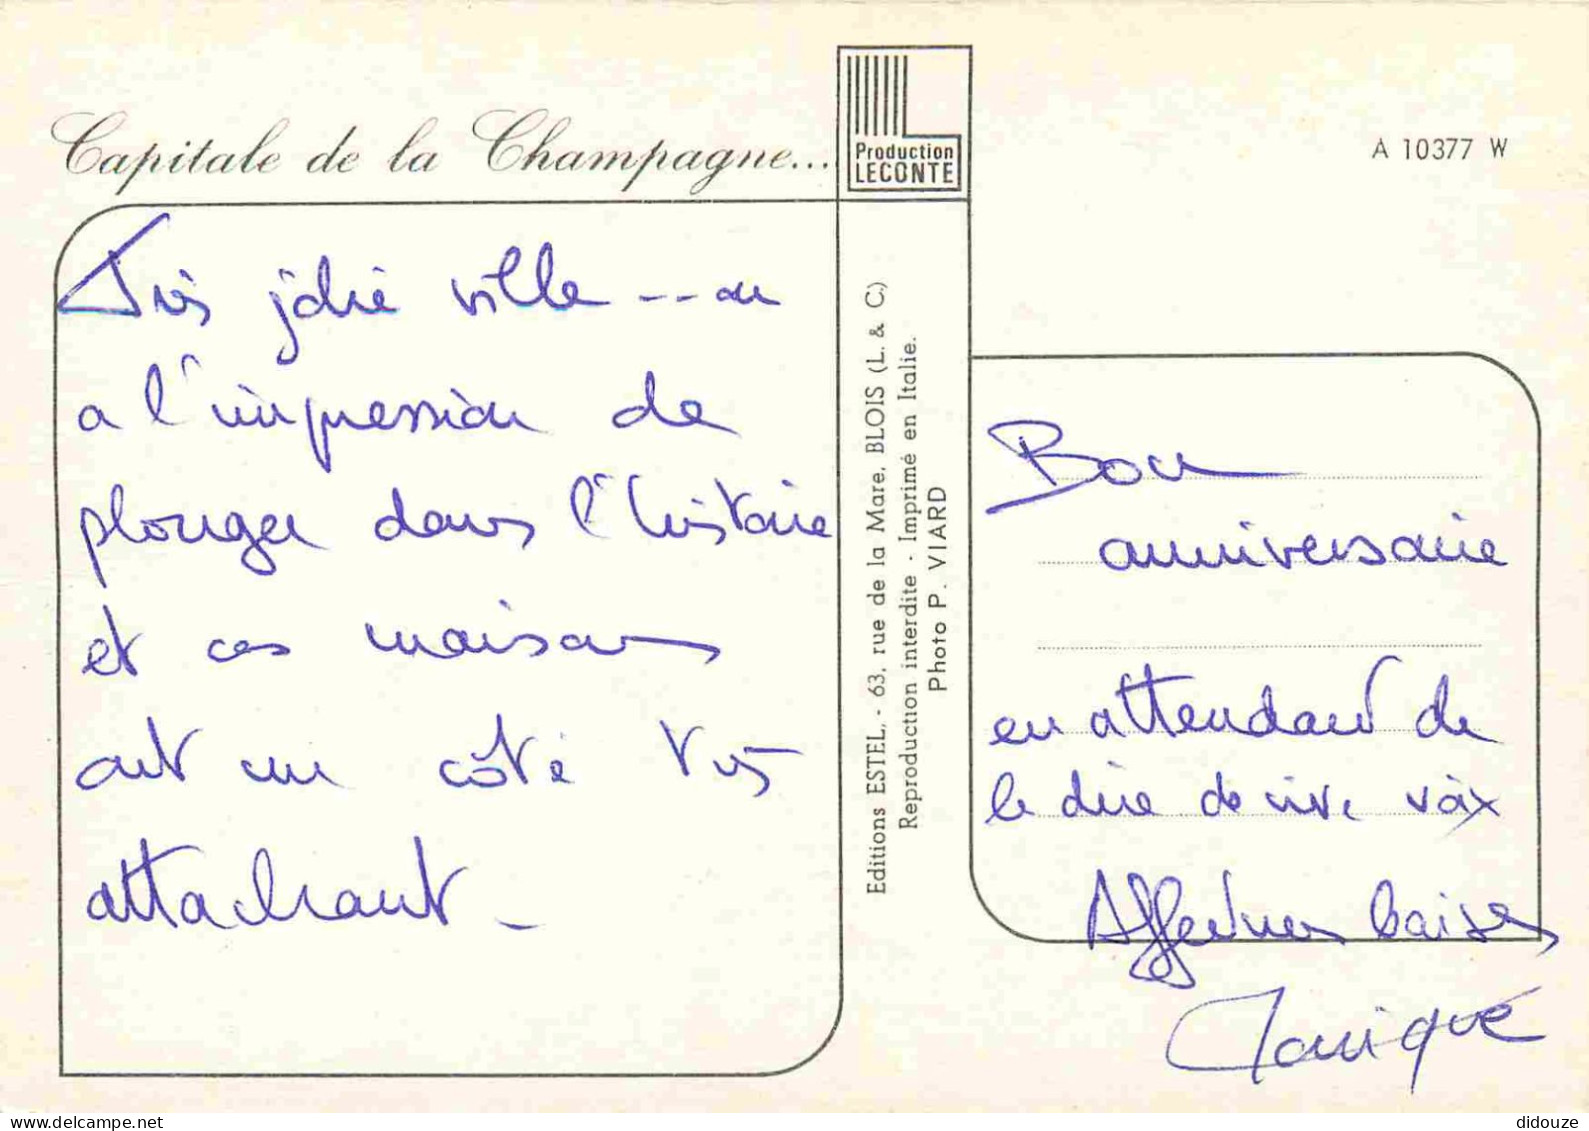 Capitale de la Champagne...
Production
LECONTE
A 10377 W
Très jolie ville --- on
a l'impression de
plonger dans l'histoire
et ces maisons
ont un côté très
attachant -
Editions ESTEL, - 63, rue de la Mare, BLOIS (L. & C.)
Reproduction interdite - Imprimé en Italie.
Photo P. VIARD
Bon
anniversaire
en attendant de
le dire de vive voix
Affectueux baisers
didouze